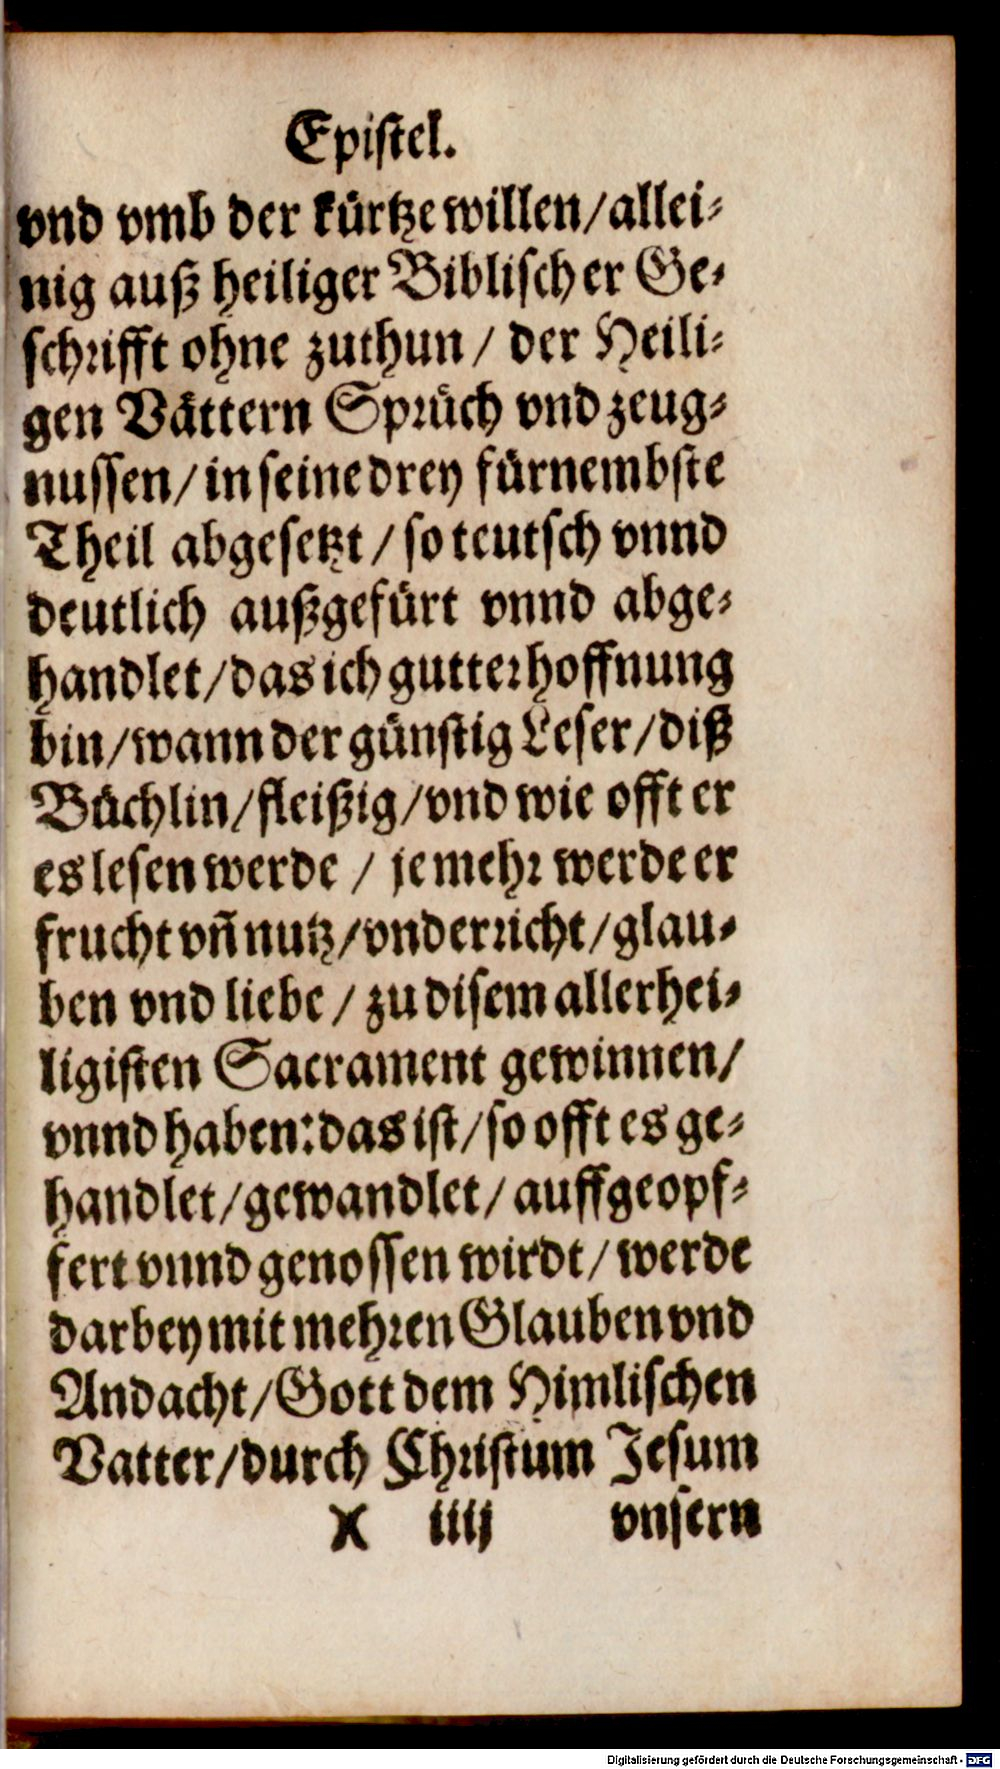 Epistel.
vnd vmb der kürtze willen/allei⸗
nig auß heiliger Biblischer Ge⸗
schrifft ohne zuthun / der Heili⸗
gen Vättern Sprüch vnd zeug⸗
nussen/ in seine drey fürnembste
Theil abgesetzt / so teutsch vnnd
deutlich außgefürt vnnd abge⸗
handlet/das ich gutter hoffnung
bin/wann der günstig Leser/diß
Büchlin/fleißig/vnd wie offt er
es lesen werde / je mehr werde er
frucht vñ nutz/vnderricht/glau⸗
ben vnd liebe / zu disem allerhei⸗
ligisten Sacrament gewinnen/
vnnd haben: das ist/so offt es ge⸗
handlet/gewandlet/ auffgeopf⸗
fert vnnd genossen wirdt/ werde
darbey mit mehren Glauben vnd
Andacht/Gott dem Himlischen
Vatter/durch Christum Jesum
X iiij vnsern
Digitalisierung gefördert durch die Deutsche Forschungsgemeinschaft - DFG